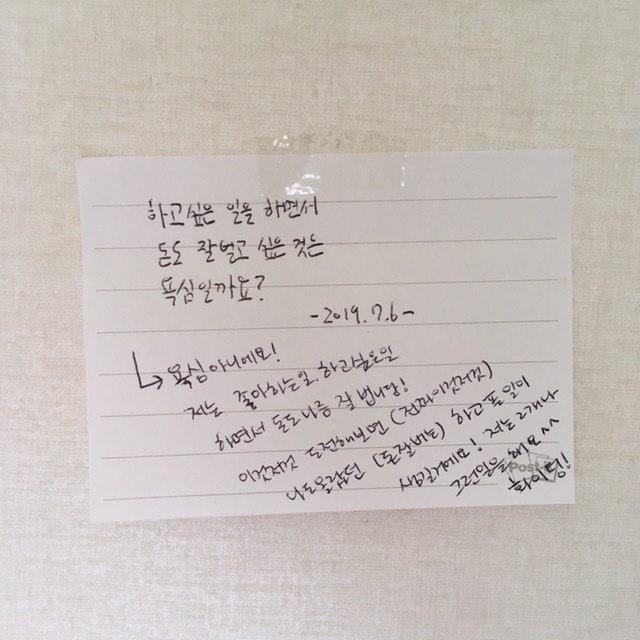 하고싶은 일을 하면서
돈도 잘벌고 싶은 것은
욕심일까요?
-2019.7.6-
욕심아니에요!
저는 좋아하는일, 하고싶은일
하면서 돈도 나름 잘 법니당!
이것저것 도전해보면 (진짜이것저것)
(돈잘버는) 하고픈일이
생길거에요! 저는 2개나
그런일을 해요^^
화이팅!
Post-it